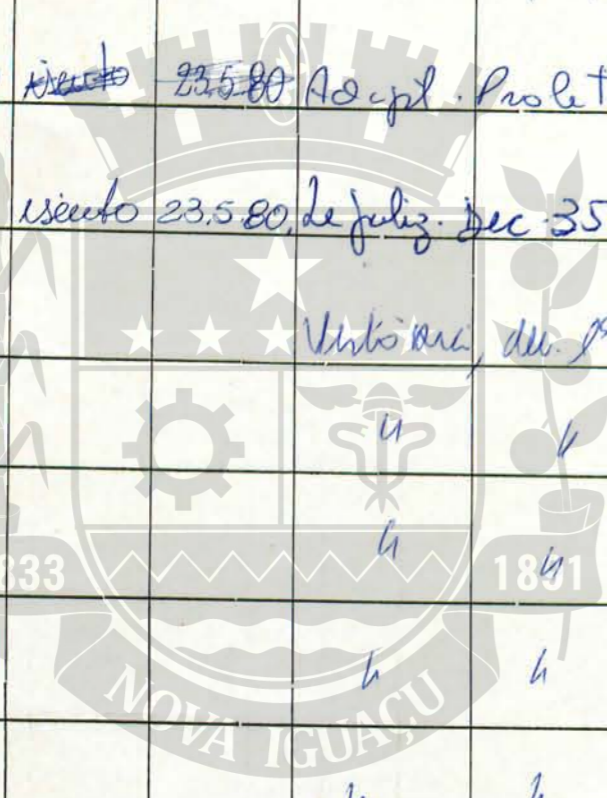 isento 23.5.80 Adapt. Prolet
isento 23.5.80. Legaliz. Dec. 35
Vistoria, dec.
" "
" "
833 1891
" "
NOVA IGUAÇU
" "